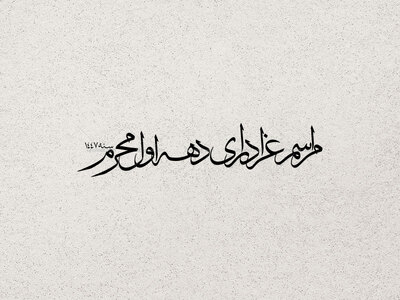 مراسم عزاداری دهه اول محرم سنه ۱۴۴۷